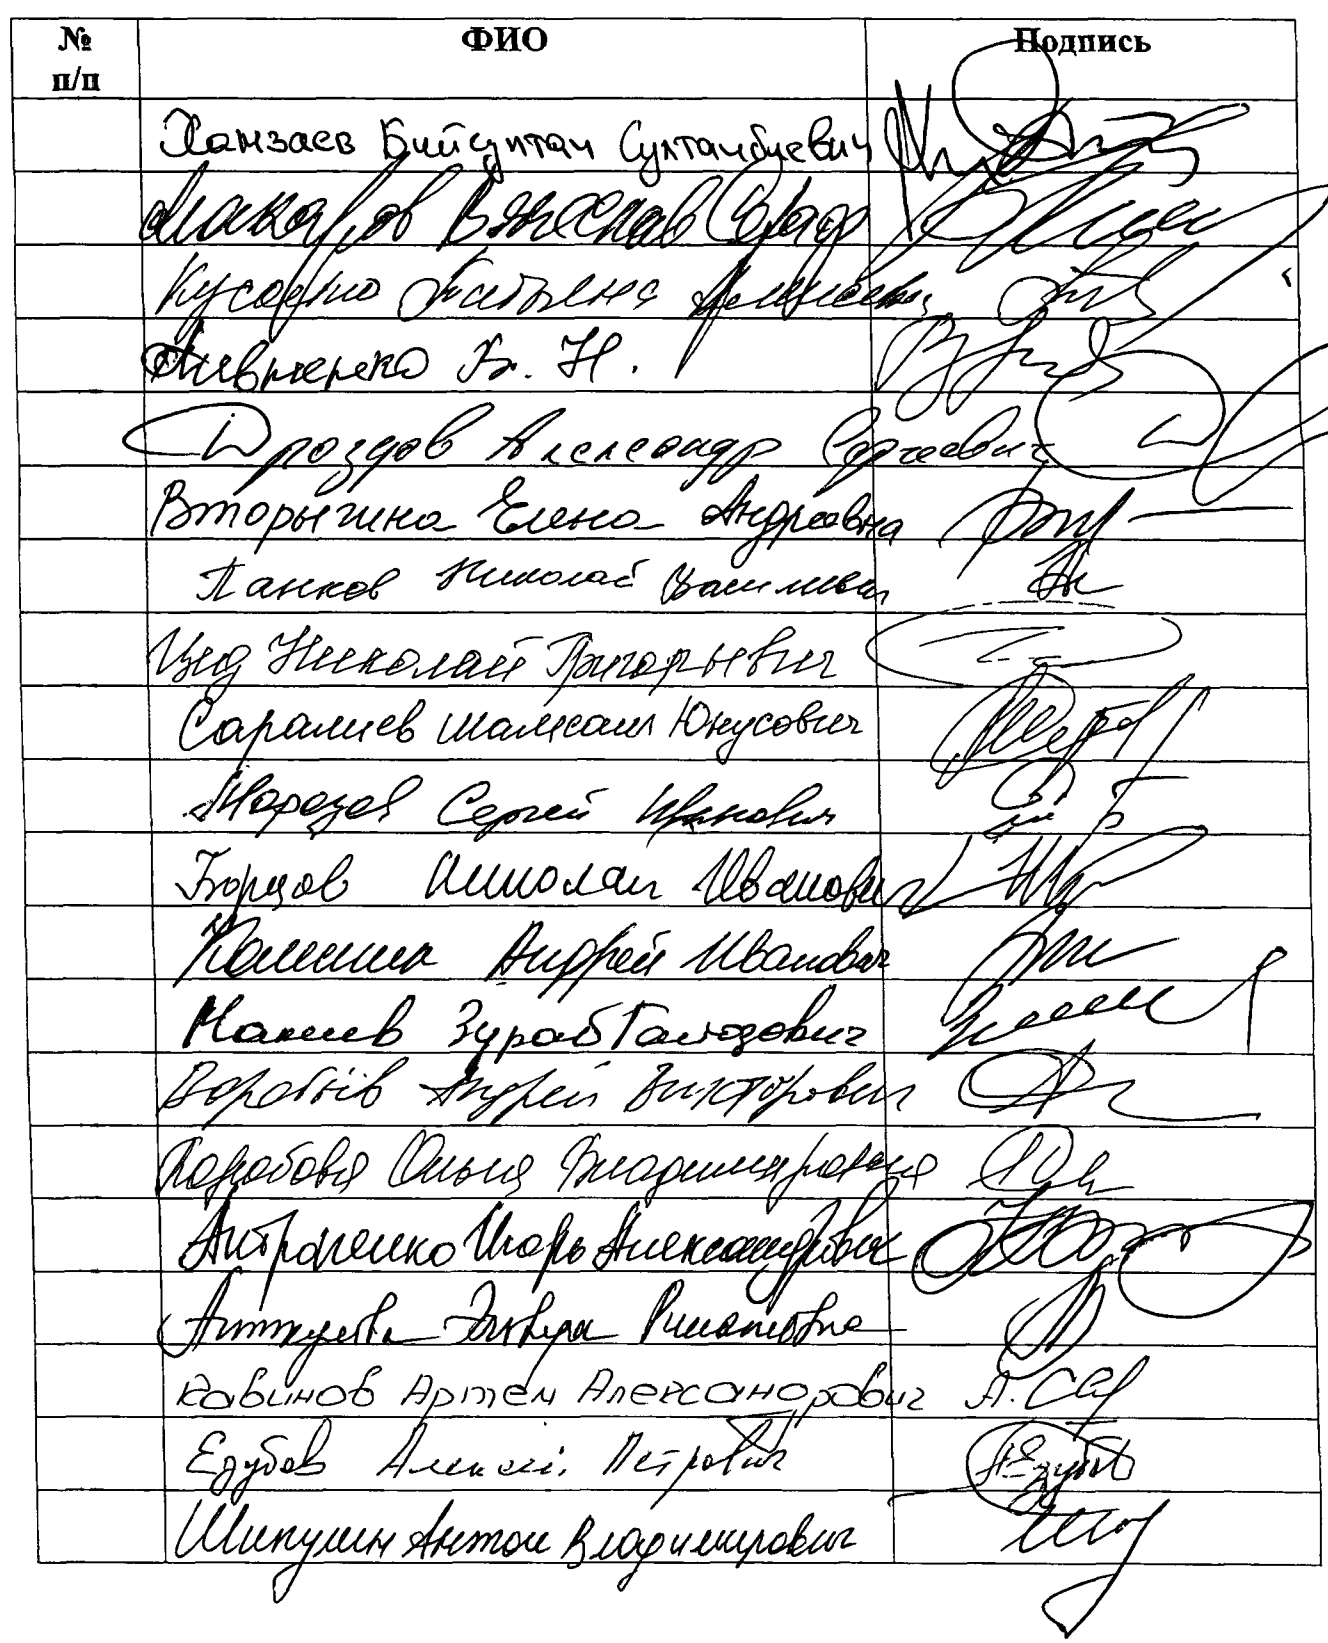 № п/п ФИО Подпись
Хамзаев Бийсултан Султанбиевич
Макаров Вячеслав
Кусайко Татьяна Алексеевна
Пивненко В. Н.
Дроздов Александр Сергеевич
Вторыгина Елена Андреевна
Панков Николай Васильевич
Цед Николай Григорьевич
Саралиев Шамсаил Юнусович
Морозов Сергей Иванович
Борцов Николай Иванович
Андрей Иванович
Макиев Зураб Гаиозович
Воробьёв Андрей Викторович
Коробова Ольга Владимировна
Антропенко Игорь Александрович
Аиткулова Эльвира Ринатовна
Кавинов Артём Александрович
Езубов Алексей Петрович
Шипулин Антон Владимирович